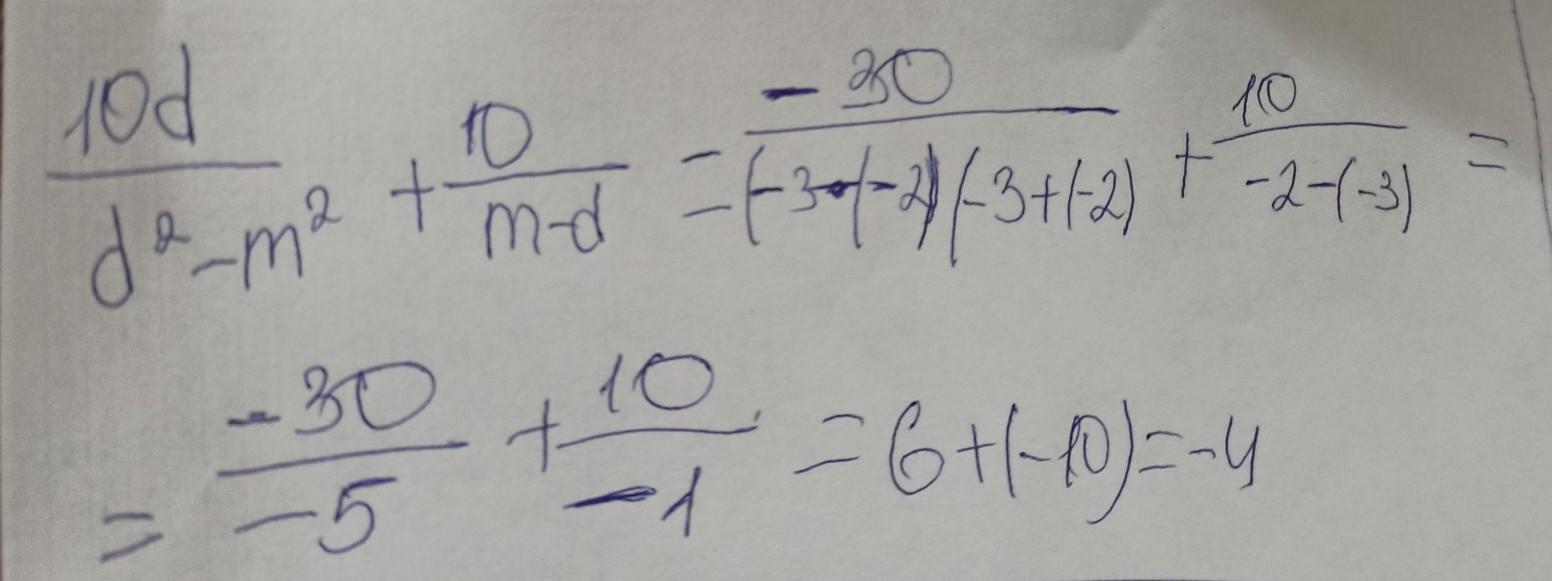 10d/(d²-m²) + 10/(m-d) = -30/((-3-(-2))(-3+(-2)) + 10/(-2-(-3)) =
= -30/-5 + 10/-1 = 6+(-10)=-4